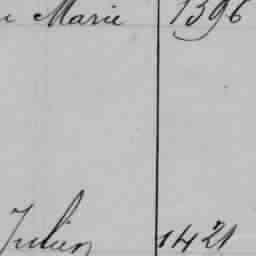 Marie 1396
Julien 1421